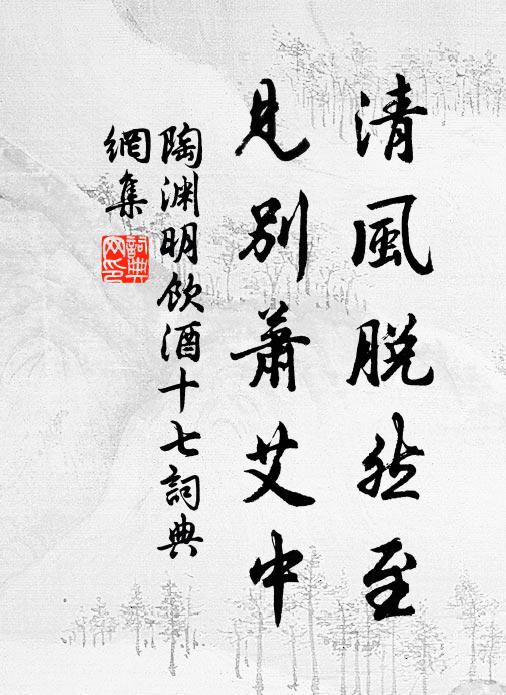 清風脱然至
見別蕭艾中
陶渊明飲酒十七詞典
網集
詞典
网印